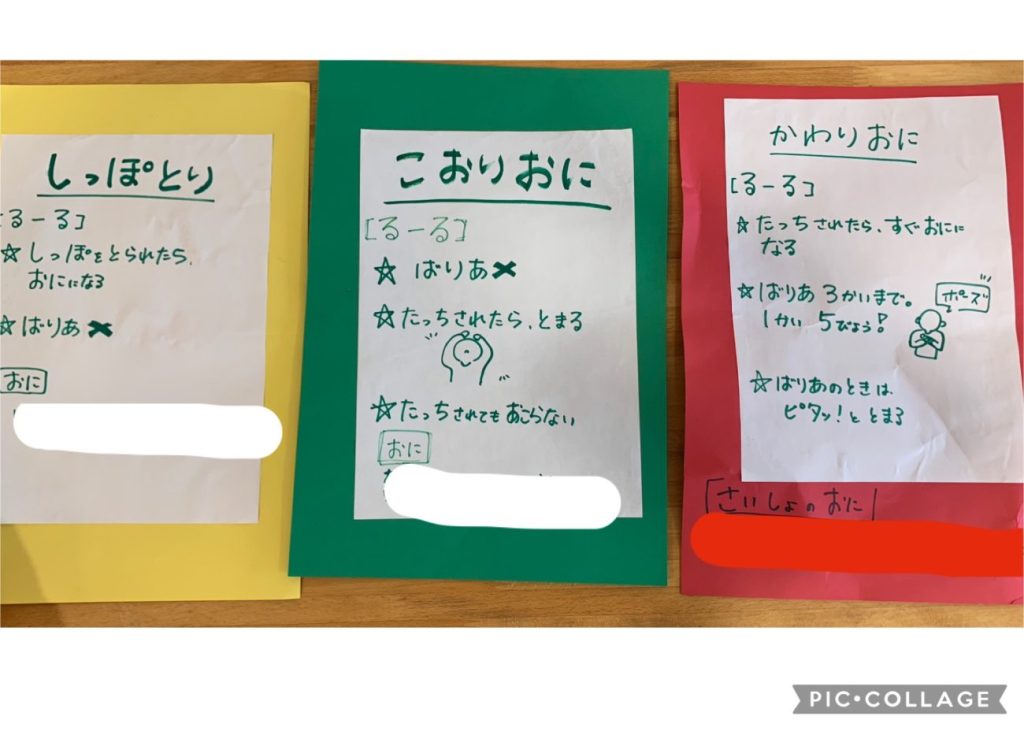 しっぽとり
[るーる]
☆しっぽをとられたら、
おにになる
☆ばりあ✖
おに
こおりおに
[るーる]
☆ばりあ✖
☆たっちされたら、とまる
☆たっちされてもおこらない
おに
かわりおに
[るーる]
☆たっちされたら、すぐおにに
なる
☆ばりあ 3かいまで。
1かい 5びょう!
ポーズ
☆ばりあのときは
ピタッ!ととまる
「さいしょのおに」
PIC•COLLAGE